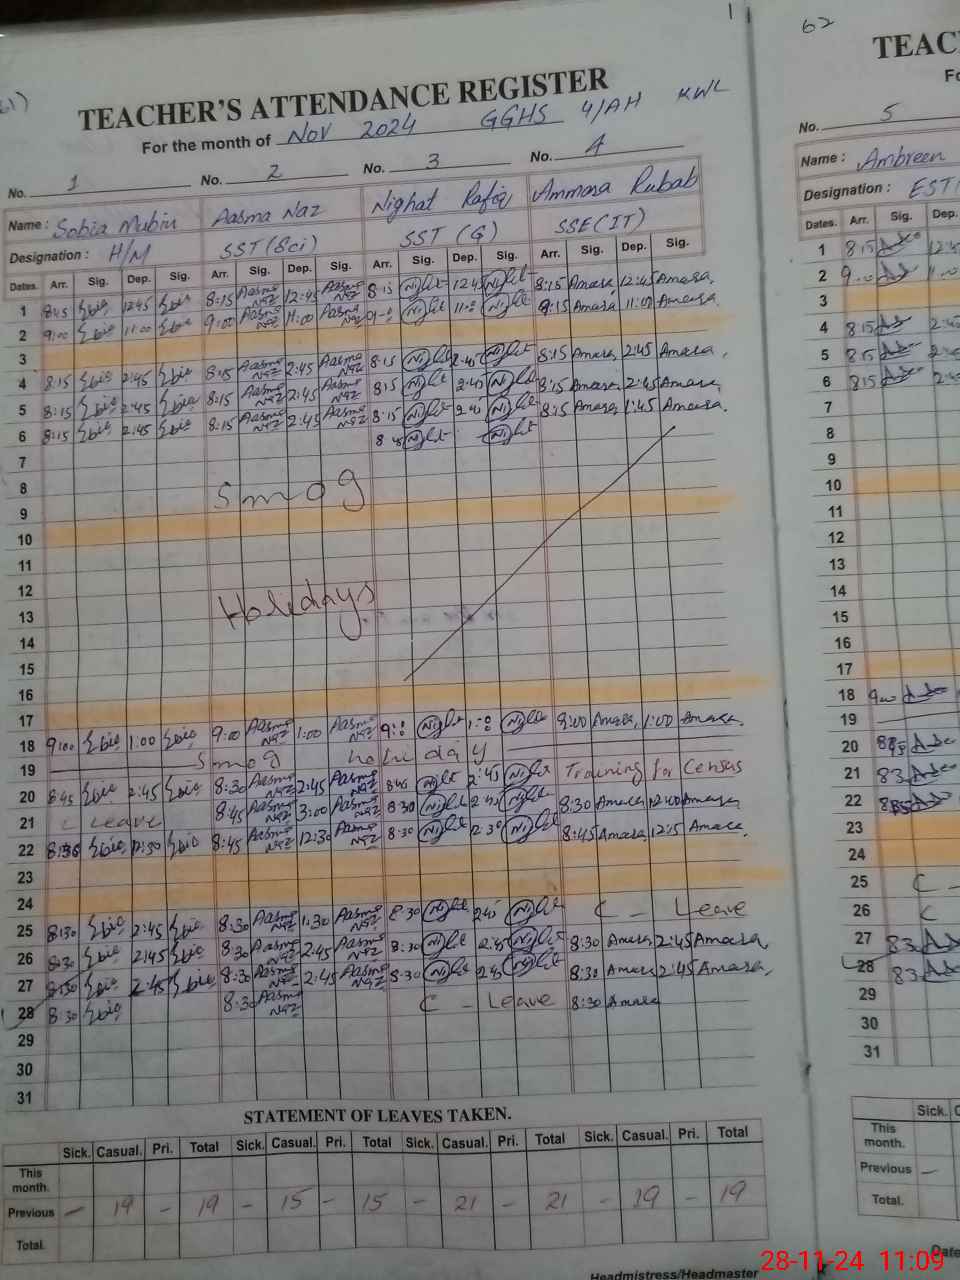 1
62
TEACHER'S ATTENDANCE REGISTER
For the month of Nov 2024 GGHS 4/AH KWL
No. 1 No. 2 No. 3 No. 4
Name : Sobia Mubin Aasma Naz Nighat Rafiq Ammara Rubab
Designation : H/M SST (Sci) SST (G) SSE (IT)
Dates. Arr. Sig. Dep. Sig. Arr. Sig. Dep. Sig. Arr. Sig. Dep. Sig. Arr. Sig. Dep. Sig.
1 8:45 12:45 8:15 Aasma Naz 12:45 Aasma Naz 8:15 12:45 8:15 Amara, 12:45 Amara,
2 9:00 11:00 9:00 Aasma Naz 11:00 Aasma Naz 9:15 Amara 11:00 Amara,
3
4 8:15 2:45 8:15 Aasma Naz 2:45 Aasma Naz 8:15 2:45 8:15 Amara, 2:45 Amara,
5 8:15 2:45 8:15 Aasma Naz 2:45 Aasma Naz 8:15 2:45 8:15 Amara, 2:45 Amara,
6 8:15 2:45 8:15 Aasma Naz 2:45 Aasma Naz 8:15 2:45 8:15 Amara, 1:45 Amara.
7
8 Smog
9
10
11
12 Holidays
13
14
15
16
17
18 9:00 1:00 9:00 Aasma Naz 1:00 Aasma Naz 9:00 Amara, 1:00 Amara.
19 Smog holiday
20 8:45 2:45 8:30 Aasma Naz 2:45 Aasma Naz 8:45 2:45 Training for Census
21 C Leave 8:45 Aasma Naz 3:00 Aasma Naz 8:30 2:45 8:30 Amara 12:40 Amara,
22 8:30 12:30 8:45 Aasma Naz 12:30 Aasma Naz 8:30 12:30 8:45 Amara, 12:15 Amara.
23
24
25 8:30 2:45 8:30 Aasma Naz 1:30 Aasma Naz 8:30 2:45 C - Leave
26 8:30 2:45 8:30 Aasma Naz 2:45 Aasma Naz 8:30 2:45 8:30 Amara 2:45 Amara,
27 8:30 2:45 8:30 Aasma Naz 2:45 Aasma Naz 8:30 2:45 8:30 Amara 2:45 Amara,
28 8:30 8:30 Aasma Naz C - Leave 8:30 Amara
29
30
31
STATEMENT OF LEAVES TAKEN.
Sick. Casual. Pri. Total Sick. Casual. Pri. Total Sick. Casual. Pri. Total Sick. Casual. Pri. Total
This month.
Previous - 19 - 19 - 15 - 15 - 21 - 21 - 19 - 19
Total.
Headmistress/Headmaster
TEAC
Fo
No. 5
Name : Ambreen
Designation : EST
Dates. Arr. Sig. Dep.
1 8:15
2 9:00
3
4 8:15
5 8:15
6 8:15
7
8
9
10
11
12
13
14
15
16
17
18 9:00
19
20
21
22
23
24
25 C -
26 C
27
28
29
30
31
Sick.
This month.
Previous -
Total.
Date
28-11-24 11:09